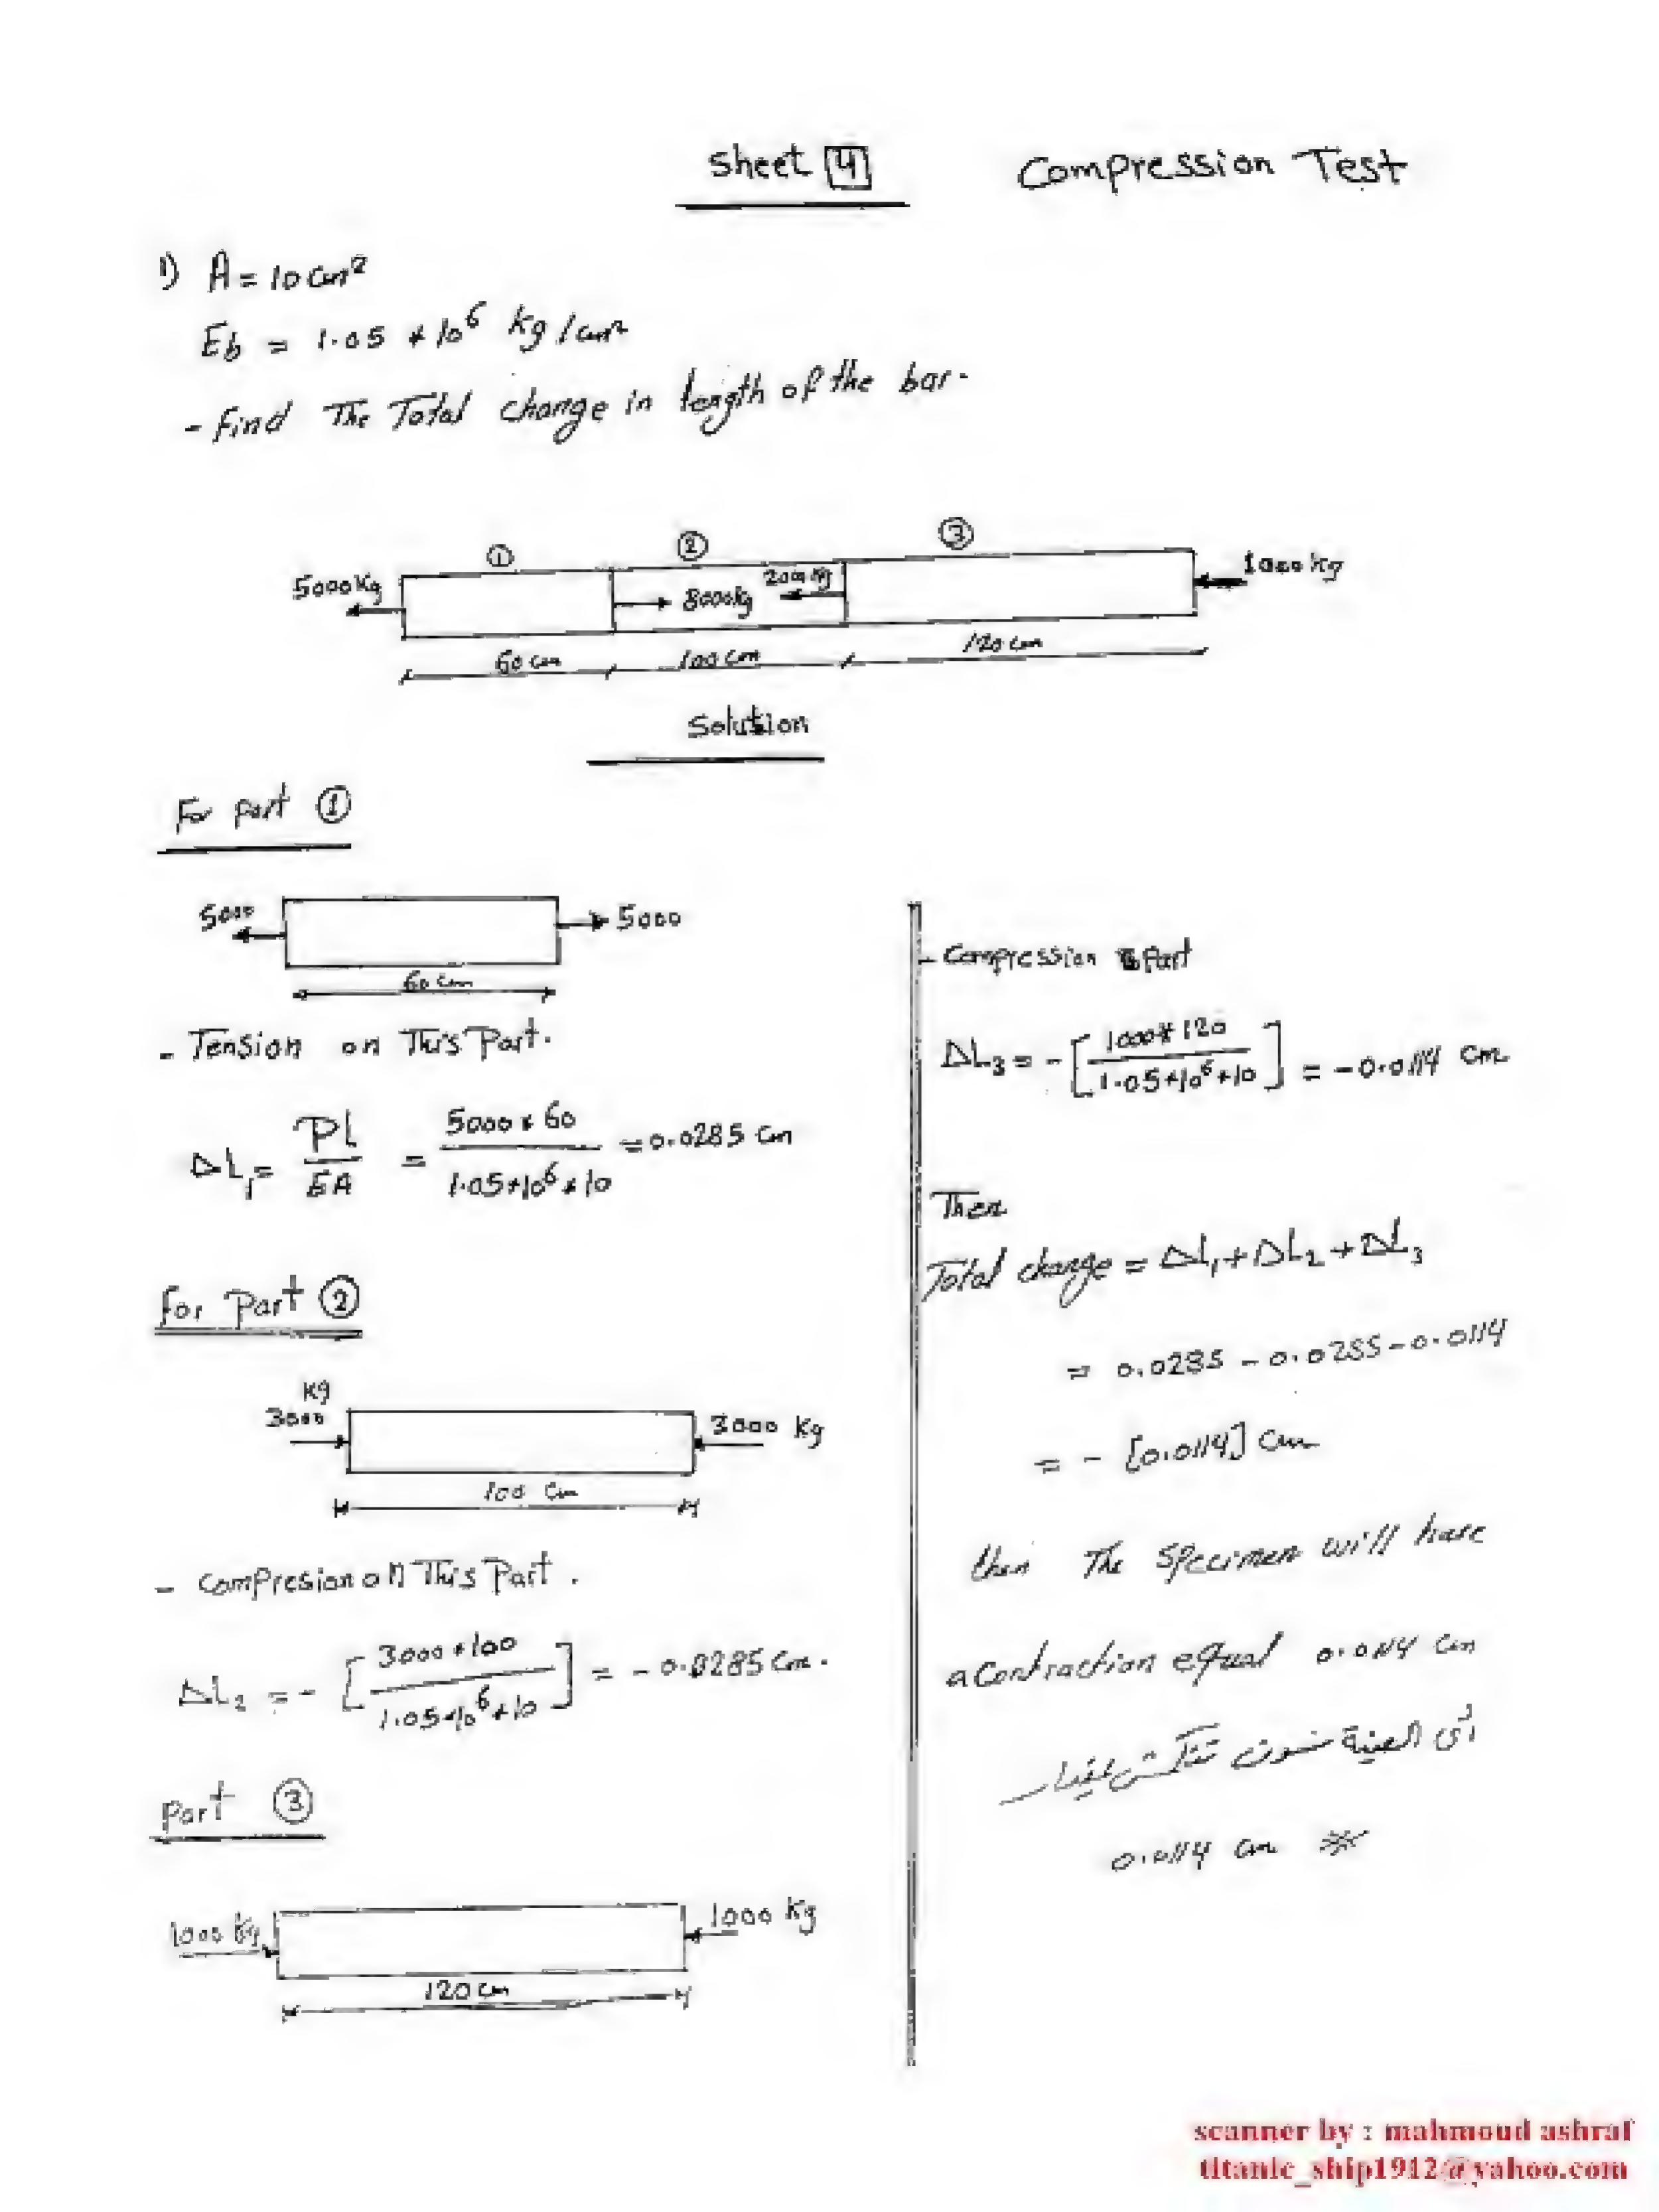 Sheet 4 Compression Test
1) A = 10 cm²
Eb = 1.05 * 10⁶ kg/cm²
- Find The Total change in length of the bar.
① ② ③
5000 Kg 8000 kg 2000 kg 1000 kg
60 cm 100 cm 120 cm
Solution
For part ①
5000 5000
60 cm
- Tension on This Part.
ΔL₁ = Pl / EA = 5000 * 60 / 1.05*10⁶*10 = 0.0285 cm
for Part ②
Kg
3000 3000 Kg
100 cm
- compresion on This Part.
ΔL₂ = - [3000*100 / 1.05*10⁶*10] = - 0.0285 cm.
part ③
1000 Kg 1000 Kg
120 cm
- Compression Part
ΔL₃ = - [1000*120 / 1.05*10⁶*10] = - 0.0114 cm
Then
Total change = ΔL₁ + ΔL₂ + ΔL₃
= 0.0285 - 0.0285 - 0.0114
= - [0.0114] cm
then The specimen will have
a contraction equal 0.0114 cm
أى العينة سوف تنكمش بمقدار
0.0114 cm
scanner by : mahmoud ashraf
titanic_ship1912@yahoo.com